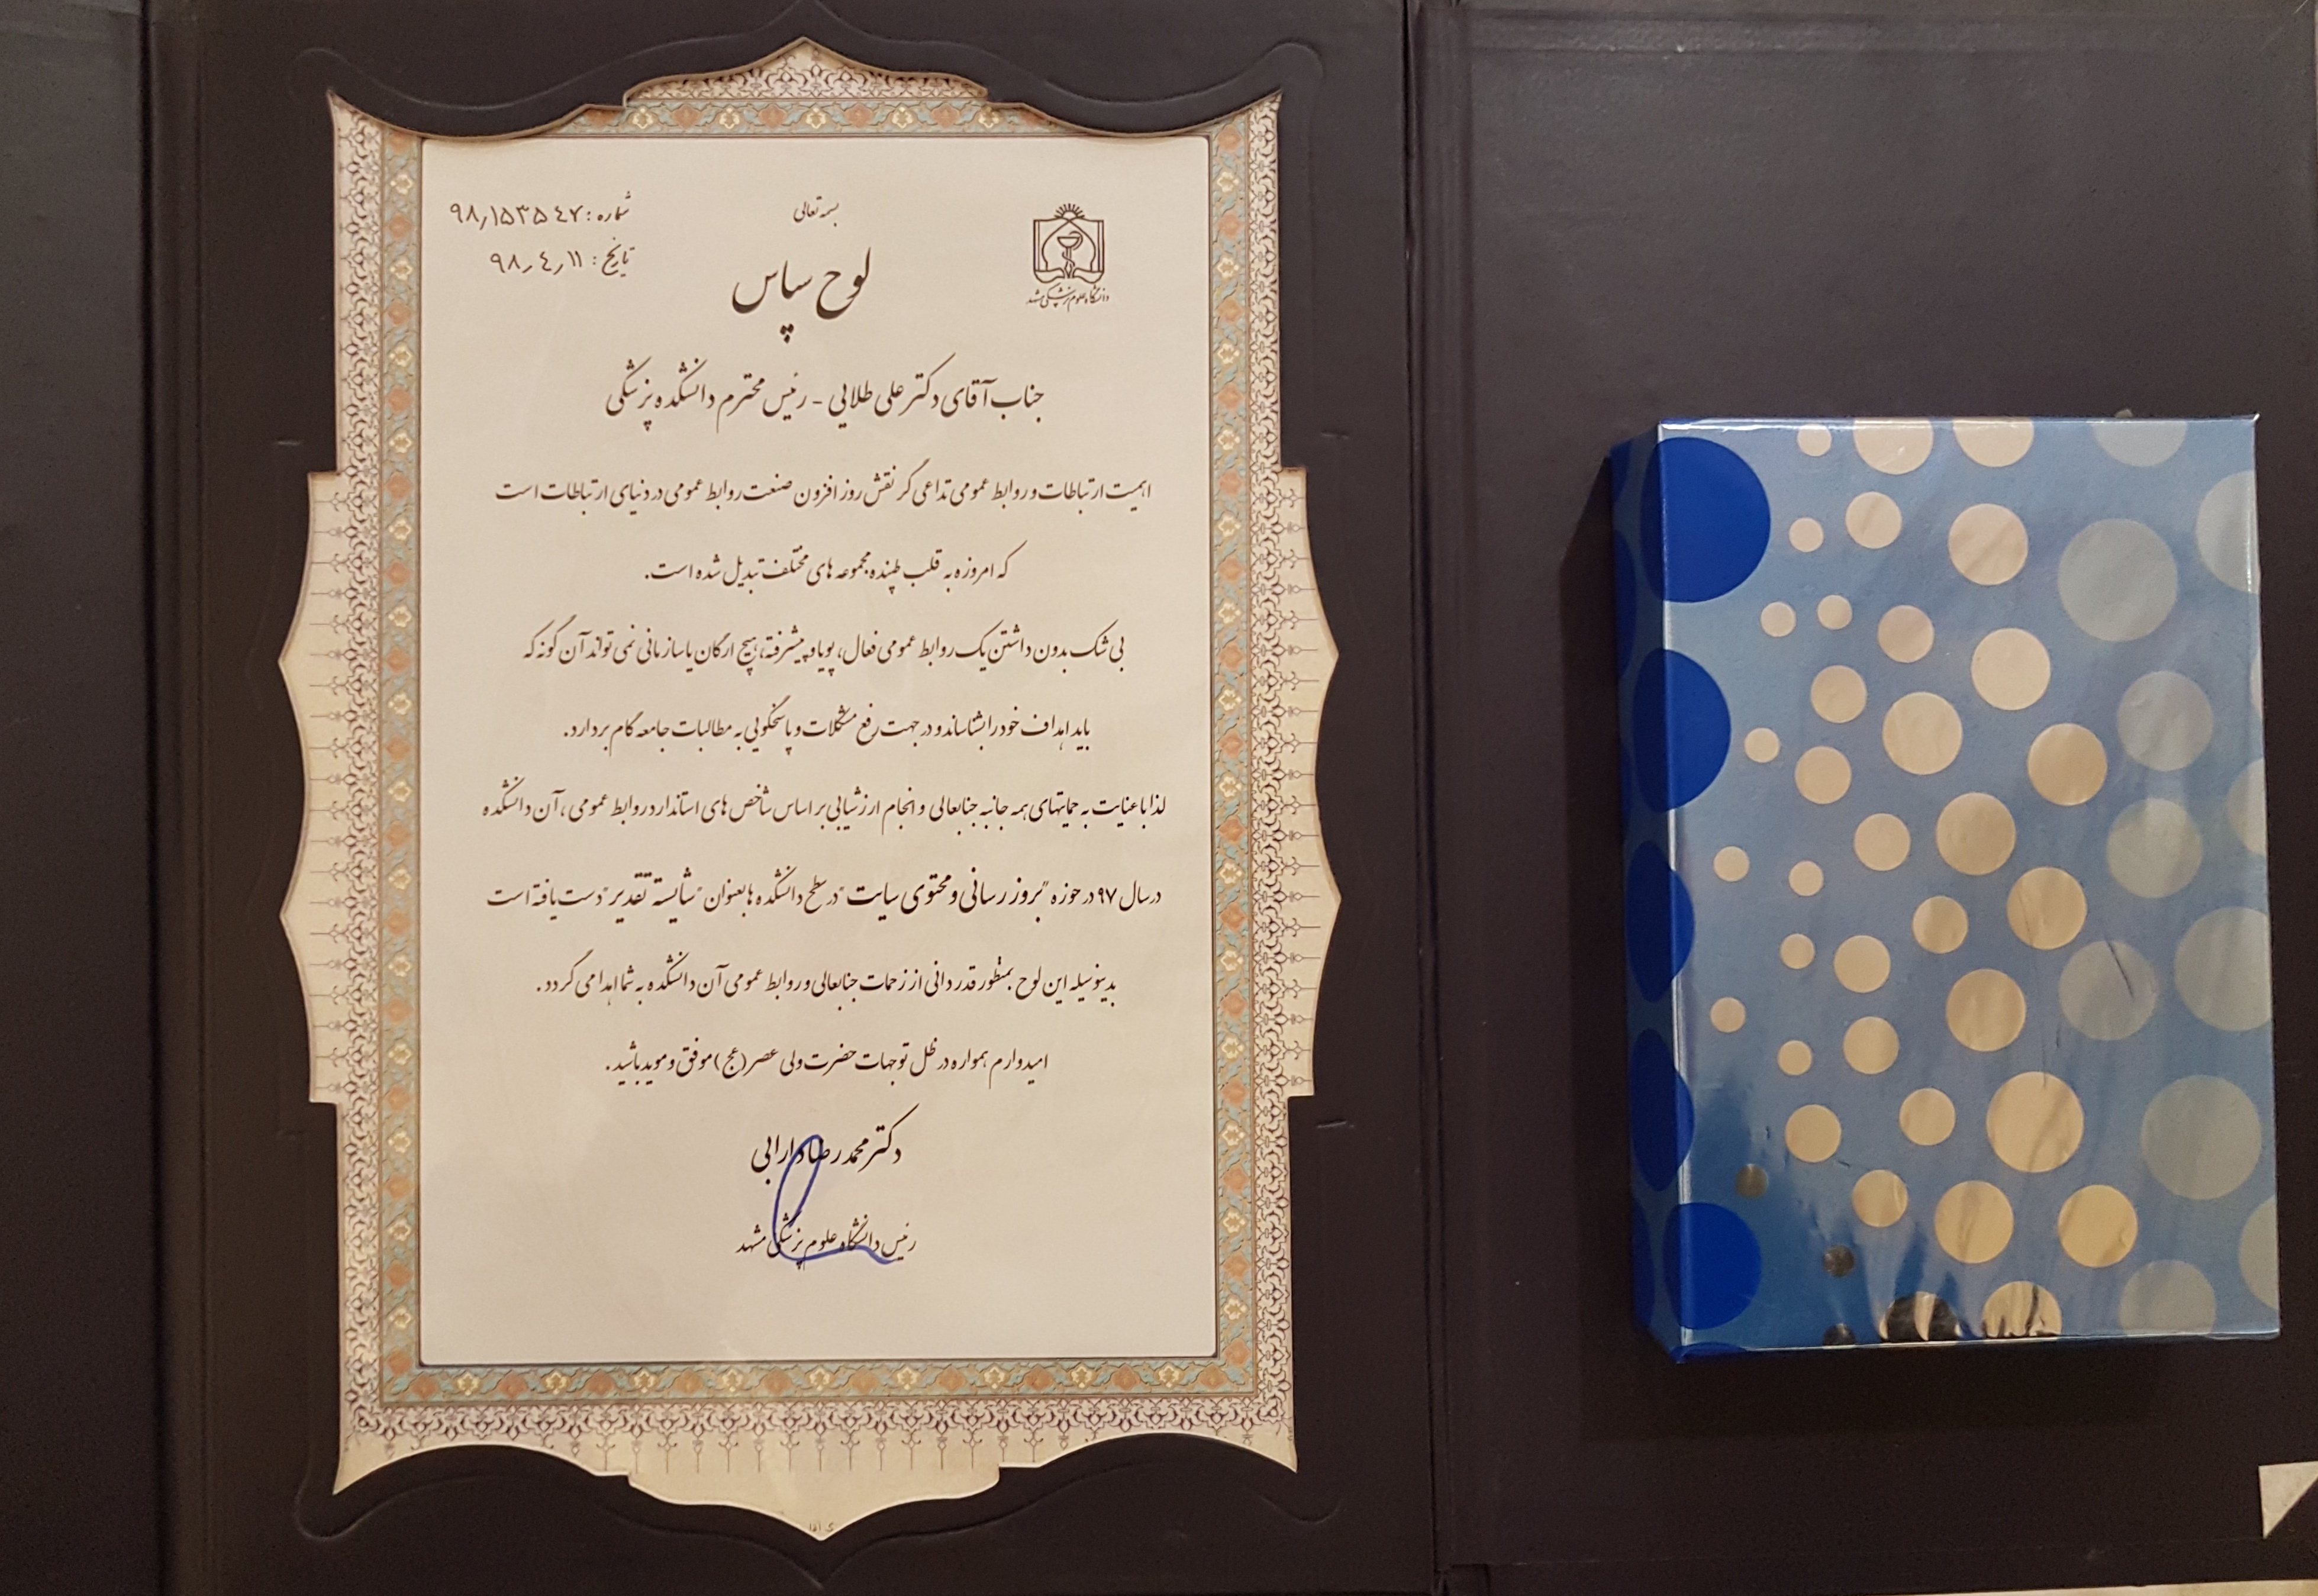 بسمه تعالی
شماره: ۹۸٫۱۵۳۵٤۷
تاریخ: ۹۸٫٤٫۱۱
دانشگاه علوم پزشکی مشهد
لوح سپاس
جناب آقای دکتر علی طلایی - رئیس محترم دانشکده پزشکی
اهمیت ارتباطات و روابط عمومی تداعی گر نقش روز افزون صنعت روابط عمومی در دنیای ارتباطات است
که امروزه به قلب طپنده مجموعه های مختلف تبدیل شده است.
بی شک بدون داشتن یک روابط عمومی فعال، پویا و پیشرفته، هیچ ارگان یا سازمانی نمی تواند آن گونه که
باید اهداف خود را بشناساند و در جهت رفع مشکلات و پاسخگویی به مطالبات جامعه گام بردارد.
لذا با عنایت به حمایتهای همه جانبه جنابعالی و انجام ارزشیابی بر اساس شاخص های استاندارد روابط عمومی، آن دانشکده
در سال ۹۷ در حوزه "بروز رسانی و محتوی سایت" در سطح دانشکده ها بعنوان "شایسته تقدیر" دست یافته است
بدینوسیله این لوح بمنظور قدردانی از زحمات جنابعالی و روابط عمومی آن دانشکده به شما اهدا می گردد.
امیدوارم همواره در ظل توجهات حضرت ولی عصر (عج) موفق و موید باشید.
دکتر محمدرضا دارابی
رئیس دانشگاه علوم پزشکی مشهد